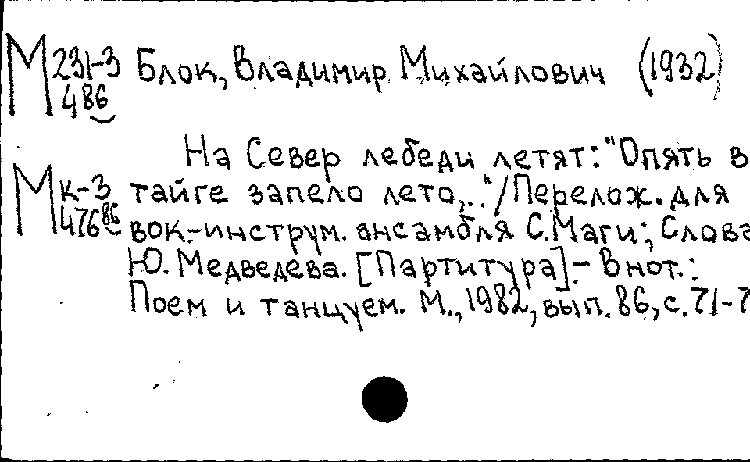 М 231-3 Блок, Владимир Михайлович (1932)
486
На Север лебеди летят: "Опять в
Мк-3 тайге запело лето..." / Перелож. для
47686 вок.-инструм. ансамбля С. Маги; Слова
Ю. Медведева. [Партитура].- В нот.:
Поем и танцуем. М., 1982, вып. 86, с. 71-7